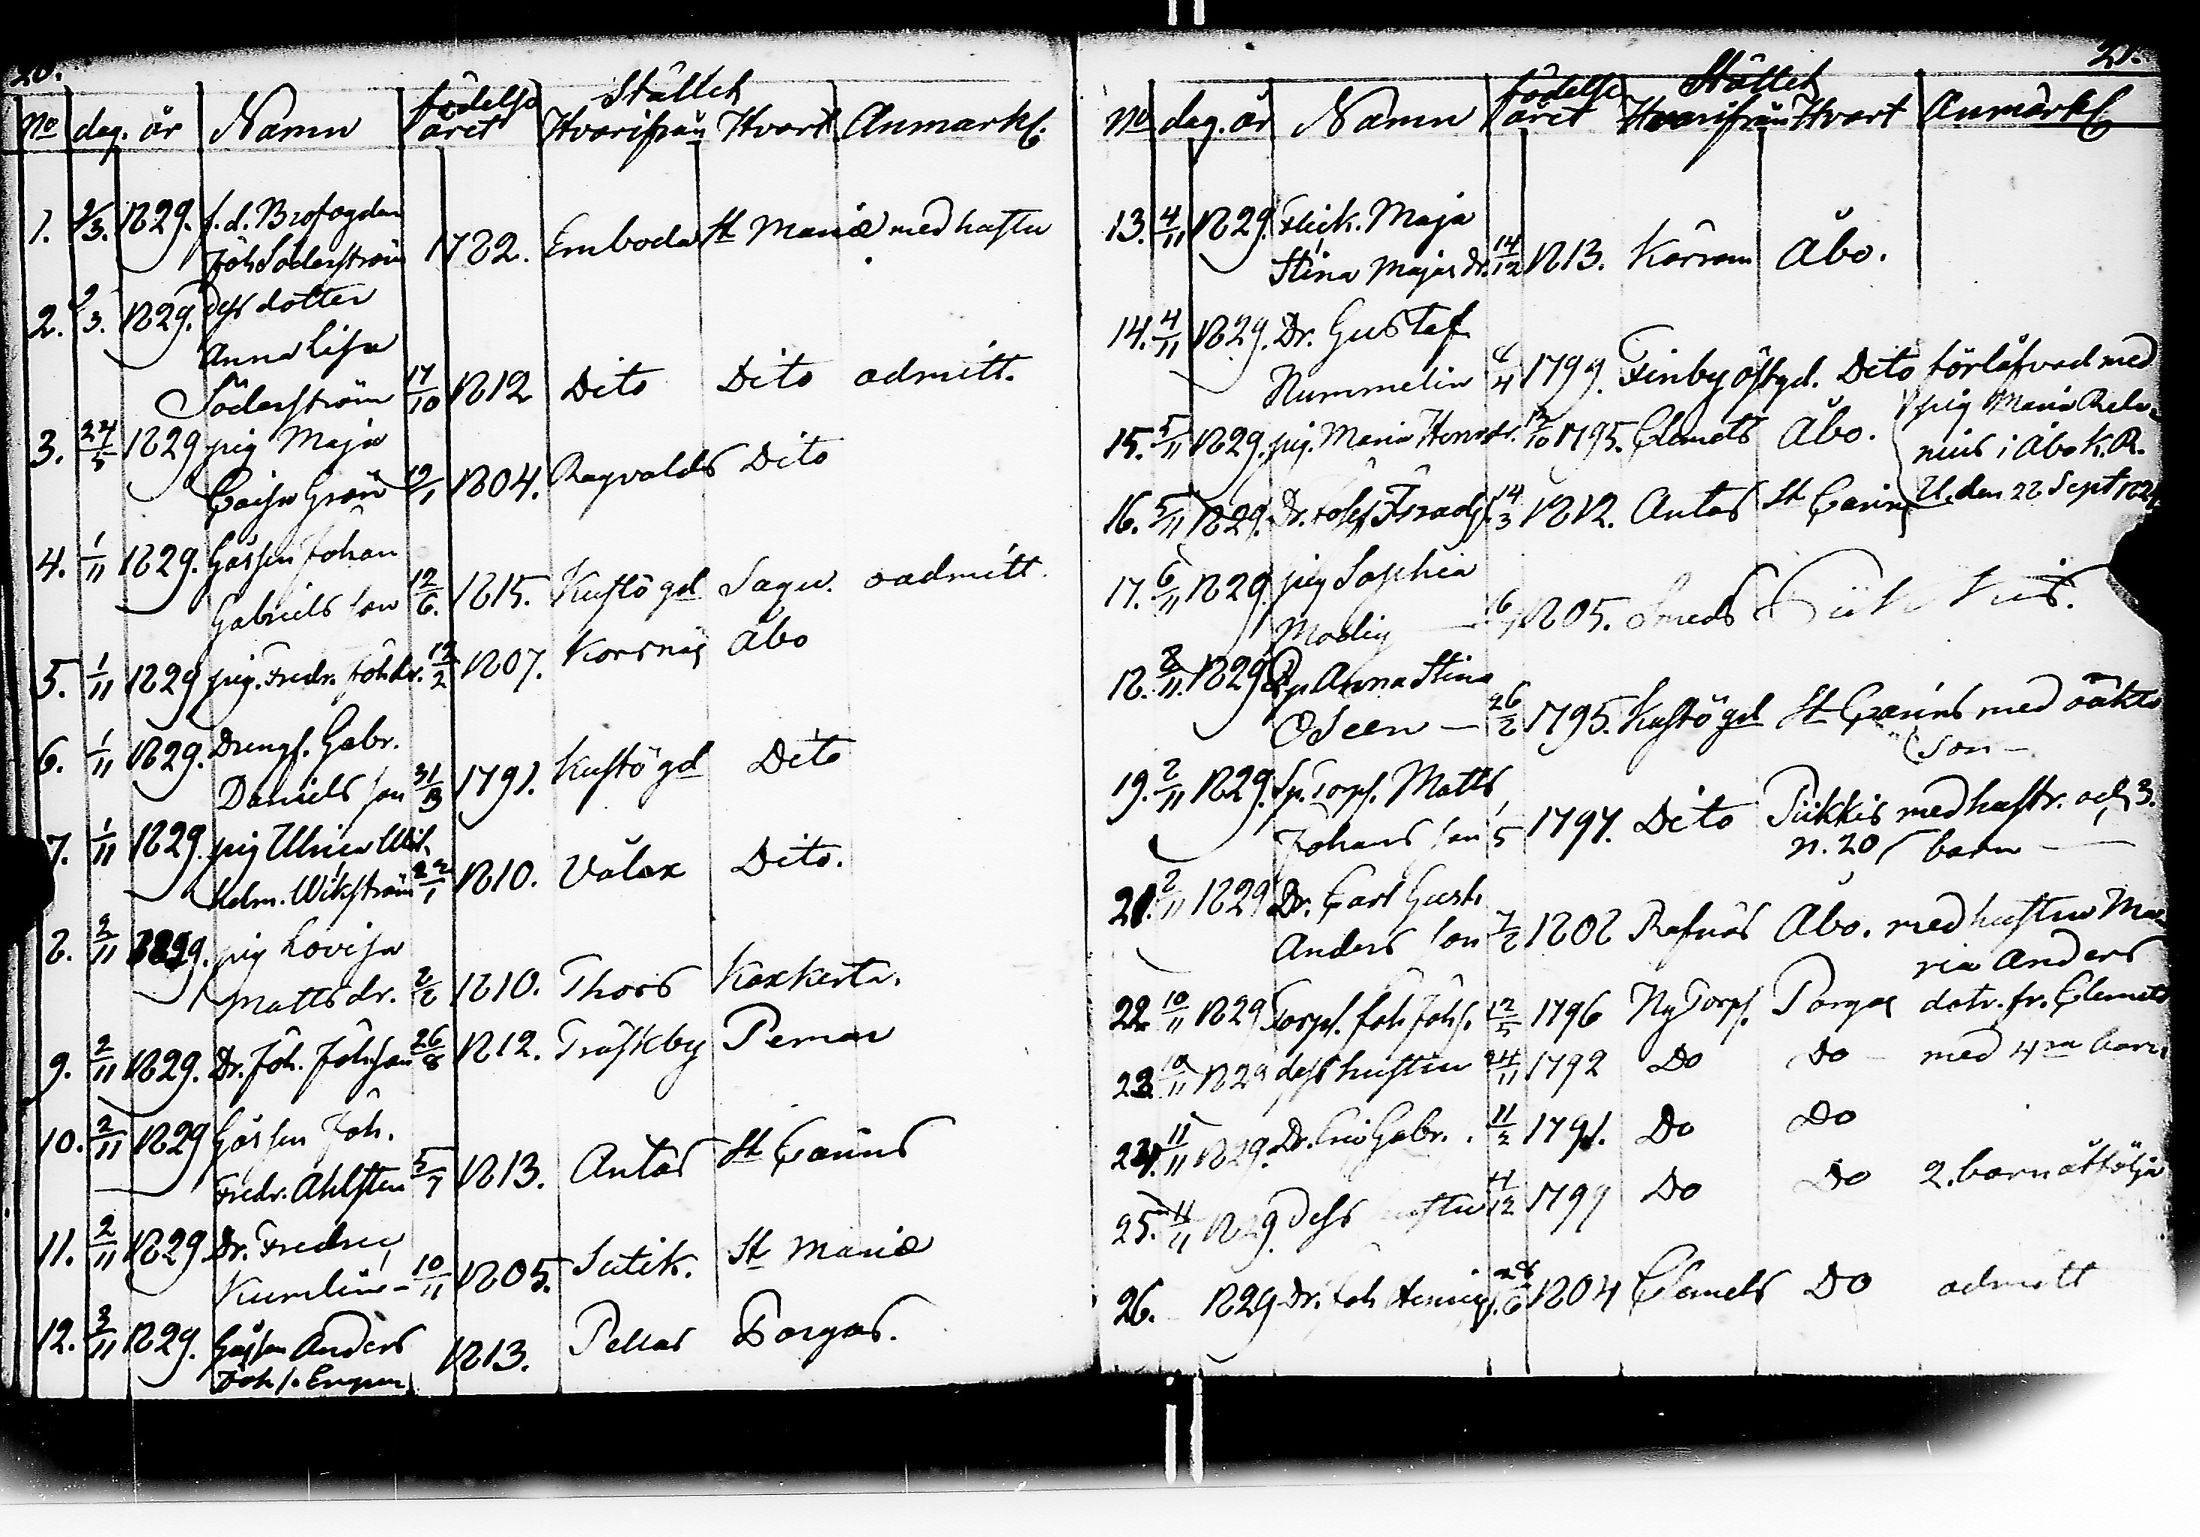 20.
No dag. år Namn födelse året Stället Hvarifrån Hvart Anmärk.
1. 1829. f. d. Brofogden
Joh Söderström 1782. Emboda St Mariæ med hustru
2. 1829. dess dotter
Anna Lisa
Söderström 17/10 1812 Dito Dito admitt.
3. 24/5 1829 pig Maja
Caisa Grön 1804. Ragvalds Dito
4. 1/11 1829. Gossen Johan
Gabriels son 12/6. 1815. Kustö gd Sagu. oadmitt.
5. 1/11 1829 pig. Fredr. Joh dr. 12/2 1807. Korsnäs Åbo
6. 1/11 1829. Drengs. Gabr.
Daniels son 1791. Kustö gd Dito
7. 1/11 1829. pig Ulrica Wil.
helm. Wikström 22/1 1810. Valax Dito.
8. 2/11 1829. pig Lovisa
Matts dr. 2/2 1810. Thors Kaxkerta.
9. 2/11 1829. Dr. Joh. Johsson 26/8 1812. Träskby Pemar
10. 2/11 1829 Gossen Joh.
Fredr. Ahlsten 5/7 1813. Antas St Carins
11. 2/11 1829 Dr. Fredric
Kumlin – 10/11 1805. St Mariæ
12. 1829. Gossen Anders
Joh s. 1813. Pellas Pargas.
21.
No dag. år Namn födelse året Stället Hvarifrån Hvart Anmärk
13. 4/11 1829. Flick. Maja
Stina Majas dr. 14/12 1813. Åbo.
14. 4/11 1829. Dr. Gustaf
Nummelin 1799. Finby Östgd. Dito förlåfvad med
pig Maria
15. 5/11 1829. pig. Maria 1795. Clemets Åbo.
nius i Åbo K. R.
16. 5/11 1829. Dr. 14/3 1812. Antas St Carins U. den 22 Sept
17. 6/11 1829. pig Sophia
Modig 1805. Smeds Piikkis.
18. 1829 Anna Stina
Oseen – 26/2 1795. Kustö gd St Carins med oäkta
son –
19. 2/11 1829. Sp. Torps. Matts
Johans son 1797. Dito Piikkis med hustr. och 3.
n. 20 barn
21. 2/11 1829 Dr. Carl Gust.
Anders son 7/2 1802 Rafnäs Åbo. med hustru Ma-
ria Anders
22. 10/11 1829 Torps. Joh Johs. 12/5 1796 Ny Torp. Pargas dotr. fr. Clemets
23. 10/11 1829 dess hustru 24/11 1792 Do Do – med 4ra barn
24. 11/11 1829. Dr. Eric Gabr. 1791. Do Do
25. 11/11 1829 dess hustru 1799 Do Do 2. barn åtfölja
26. 1829 Dr. Joh 1804 Clemets Do admitt